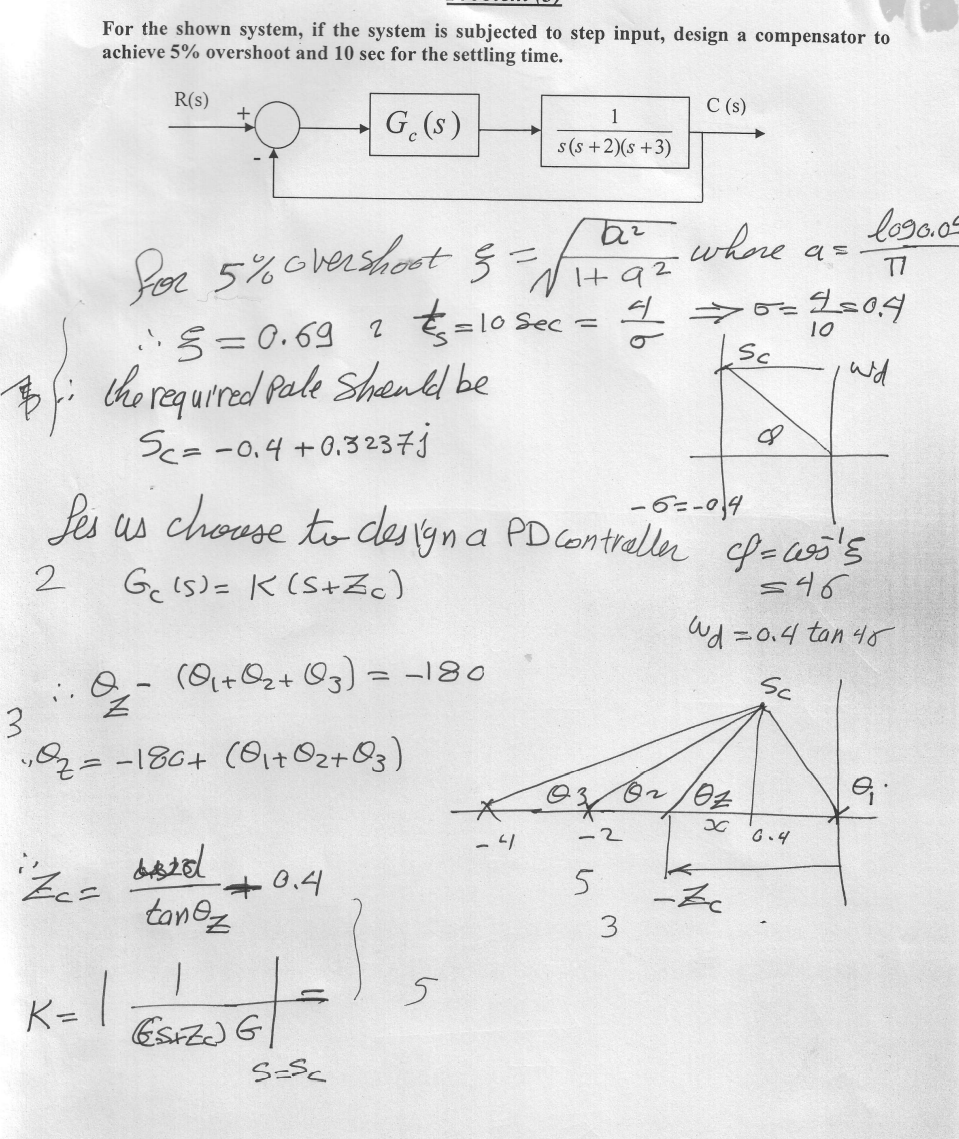 For the shown system, if the system is subjected to step input, design a compensator to
achieve 5% overshoot and 10 sec for the settling time.
R(s)
+
-
G_c(s)
1
s(s+2)(s+3)
C (s)
For 5% overshoot ξ = √(a² / 1+a²) where a = log0.05 / π
∴ ξ = 0.69 , t_s = 10 sec = 4/σ ⇒ σ = 4/10 = 0.4
∴ the required Pole Should be
S_c = -0.4 + 0.3237j
S_c
wd
φ
-σ=-0.4
Les us choose to design a PD controller
φ = cos⁻¹ ξ
2
G_c(s) = K(S+Z_c)
= 46
wd = 0.4 tan 46
∴ θ_Z - (θ1+θ2+θ3) = -180
3
∴ θ_Z = -180+ (θ1+θ2+θ3)
S_c
θ3 θ2 θ_Z θ1
-4 -2 x 0.4
-Z_c
5
3
∴ Z_c = wd / tanθ_Z + 0.4
K = | 1 / (S+Z_c) G | =
S=S_c
5